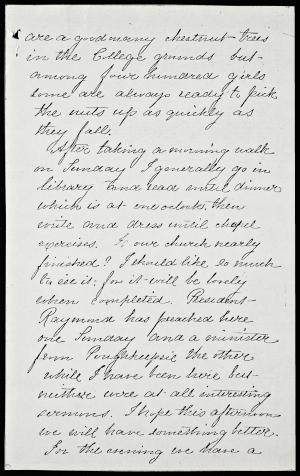 are a good many chestnut trees
in the College grounds but
among four hundred girls
some are always ready to pick
the nuts up as quickly as
they fall.
After taking a morning walk
on Sunday I generally go in
library and read until dinner
which is at one oclock, then
write and dress until chapel
exercises. Is our church nearly
finished? I should like so much
to see it; for it will be lovely
when completed. President
Raymond has preached here
one Sunday and a minister
from Poughkeepsie the other
while I have been here but
neither were at all interesting
sermons. I hope this afternoon
we will have something better.
In the evening we have a